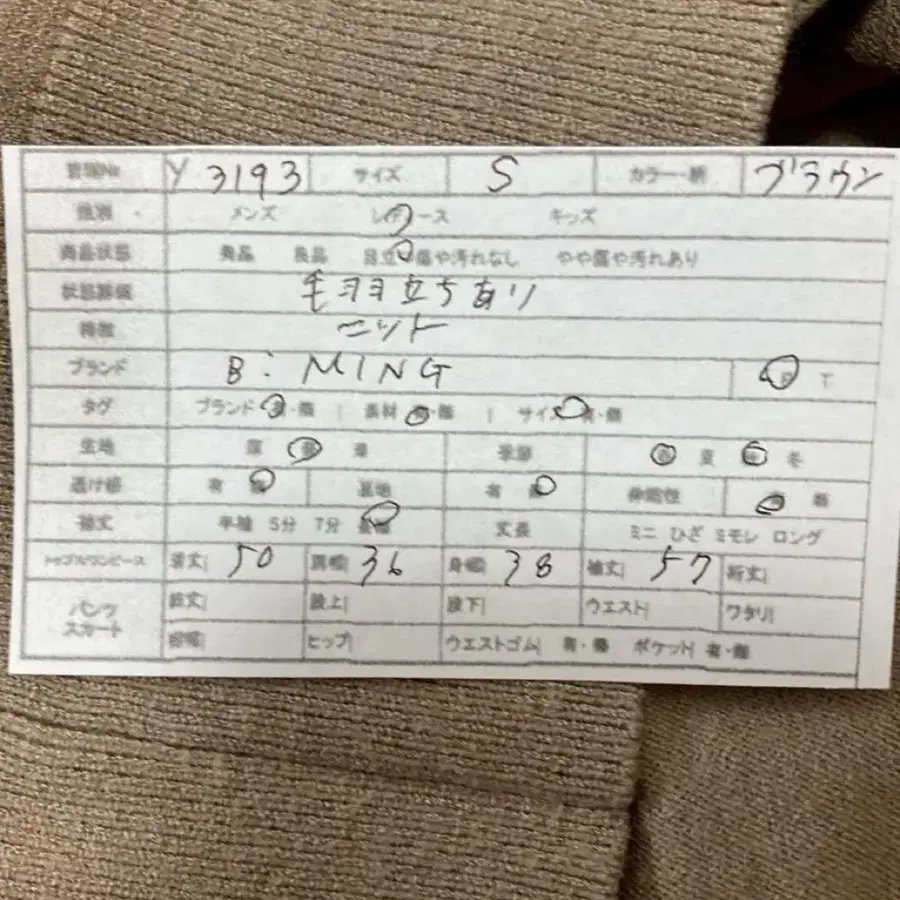 管理No Y 3193 サイズ S カラー・柄 ブラウン
性別 メンズ レディース キッズ
商品状態 美品 良品 目立つ傷や汚れなし やや傷や汚れあり
状態詳細 毛羽立ちあり
特徴 ニット
ブランド B:MING T
タグ ブランド 有・無 | 素材 有・無 | サイズ 有・無
生地 厚 薄 季節 春 夏 秋 冬
透け感 有 無 裏地 有 無 伸縮性 有 無
袖丈 半袖 5分 7分 長袖 丈長 ミニ ひざ ミモレ ロング
トップス/ワンピース 着丈 50 肩幅 36 身幅 38 袖丈 57 裄丈
パンツ スカート 総丈 股上 股下 ウエスト ワタリ
裾幅 ヒップ ウエストゴム 有・無 ポケット 有・無